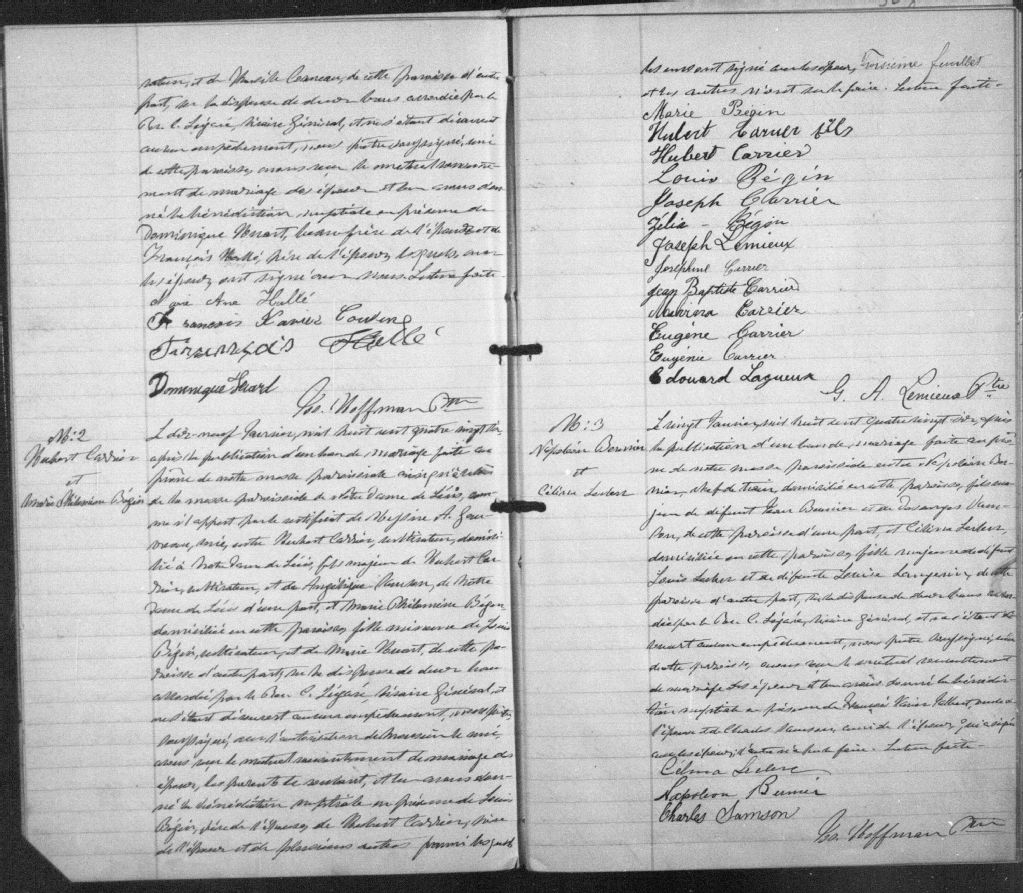 nature, et de Cécile Carneau, de cette paroisse d'autre
part, vu la dispense de deux bans accordée par le
Rev. C. Légaré, Vicaire Général, et ne s'étant découvert
aucun empêchement, nous prêtre soussigné, curé
de cette paroisse, avons reçu le mutuel consente-
ment de mariage des époux et leur avons don-
né la bénédiction nuptiale en présence de
Dominique Huart, beau-frère de l'époux et de
François Hallé, père de l'épouse, lesquels, avec
les époux, ont signé avec nous. Lecture faite.
Ane Hallé
Francois Xavier Couling
François Hallé
Dominique Huard
Go. Hoffman Ptre
M: 2
Hubert Carrier
et
Marie Philomène Bégin
Le dix-neuf Janvier, mil huit cent quatre vingt dix,
après la publication d'un ban de mariage faite au
prône de notre messe paroissiale ainsi qu'au prône
de la messe paroissiale de Notre Dame de Lévis, com-
me il appert par le certificat de Messire A. Gau-
vreau, curé, entre Hubert Carrier, cultivateur, domici-
lié à Notre Dame de Lévis, fils majeur de Hubert Car-
rier, cultivateur, et de Angélique Samson, de Notre
Dame de Lévis d'une part, et Marie Philomène Bégin,
domiciliée en cette paroisse, fille mineure de Louis
Bégin, cultivateur, et de Marie Huart, de cette pa-
roisse d'autre part, vu la dispense de deux bans
accordée par le Rev. C. Légaré, Vicaire Général, et
ne s'étant découvert aucun empêchement, nous prêtre
soussigné, avec l'autorisation de Monsieur le curé,
avons reçu le mutuel consentement de mariage des
époux, les parents le voulant, et leur avons don-
né la bénédiction nuptiale en présence de Louis
Bégin, père de l'épouse, de Hubert Carrier, père
de l'époux et de plusieurs autres parmi lesquels
les uns ont signé avec les époux, Troisième feuillet
et les autres n'ont su le faire. Lecture faite.
Marie Bégin
Hubert Carrier fils
Hubert Carrier
Louis Bégin
Joseph Carrier
Zélia Bégin
Joseph Lemieux
Joséphine Carrier
Jean Baptiste Carrier
Carrier
Eugène Carrier
Eugénie Carrier
Edouard Lagueux
G. A. Lemieux Ptre
M: 3
Napoléon Bernier
et
Célina Leclerc
Le vingt Janvier, mil huit cent quatre vingt dix, après
la publication d'un ban de mariage faite au prô-
ne de notre messe paroissiale entre Napoléon Ber-
nier, chef de train, domicilié en cette paroisse, fils ma-
jeur de défunt Jean Bernier et de Desanges Sam-
son, de cette paroisse d'une part, et Célina Leclerc,
domiciliée en cette paroisse, fille majeure de défunt
Louis Leclerc et de défunte Louise Langevin, de cette
paroisse d'autre part, vu la dispense de deux bans accor-
dée par le Rev. C. Légaré, Vicaire Général, et ne s'étant dé-
couvert aucun empêchement, nous prêtre soussigné, curé
de cette paroisse, avons reçu le mutuel consentement
de mariage des époux et leur avons donné la bénédic-
tion nuptiale en présence de François Xavier
l'épouse et de Charles Samson, ami de l'époux, qui a signé
avec les époux, l'autre n'a su le faire. Lecture faite.
Célina Leclerc
Napoléon Bernier
Charles Samson
Go. Hoffman Ptre